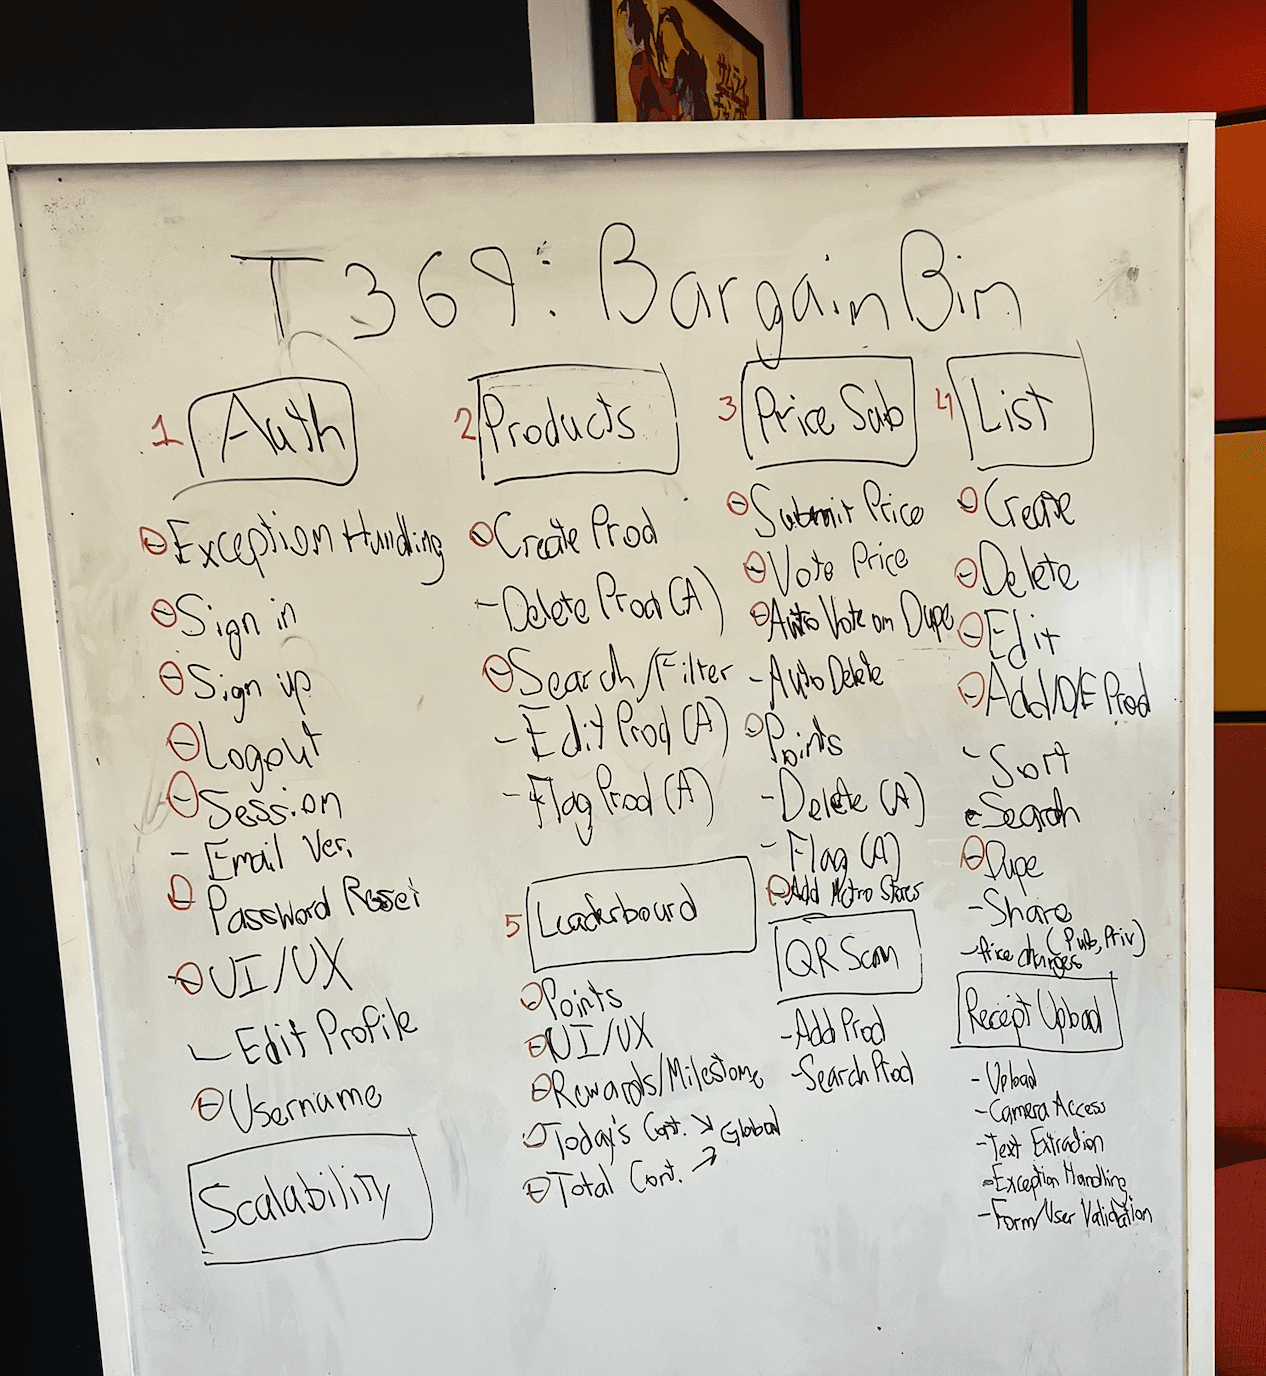 T369: BargainBin
1 Auth
Exception Handling
Sign in
Sign up
Logout
Session
- Email Ver.
Password Reset
UI/UX
- Edit Profile
Username
Scalability
2 Products
Create Prod
- Delete Prod (A)
Search/Filter
- Edit Prod (A)
- Flag Prod (A)
5 Leaderboard
Points
UI/UX
Rewards/Milestone
Today's Cont. ↘ Global
Total Cont. ↗
3 Price Sub
Submit Price
Vote Price
Auto Vote on Dupe
- Auto Delete
Points
- Delete (A)
- Flag (A)
Add Metro Stores
QR Scan
- Add Prod
- Search Prod
4 List
Create
Delete
Edit
Add/D/E Prod
- Sort
Search
Dupe
- Share
(Pub, Priv)
- Price changes
Receipt Upload
- Upload
- Camera Access
- Text Extraction
- Exception Handling
- Form/User Validation